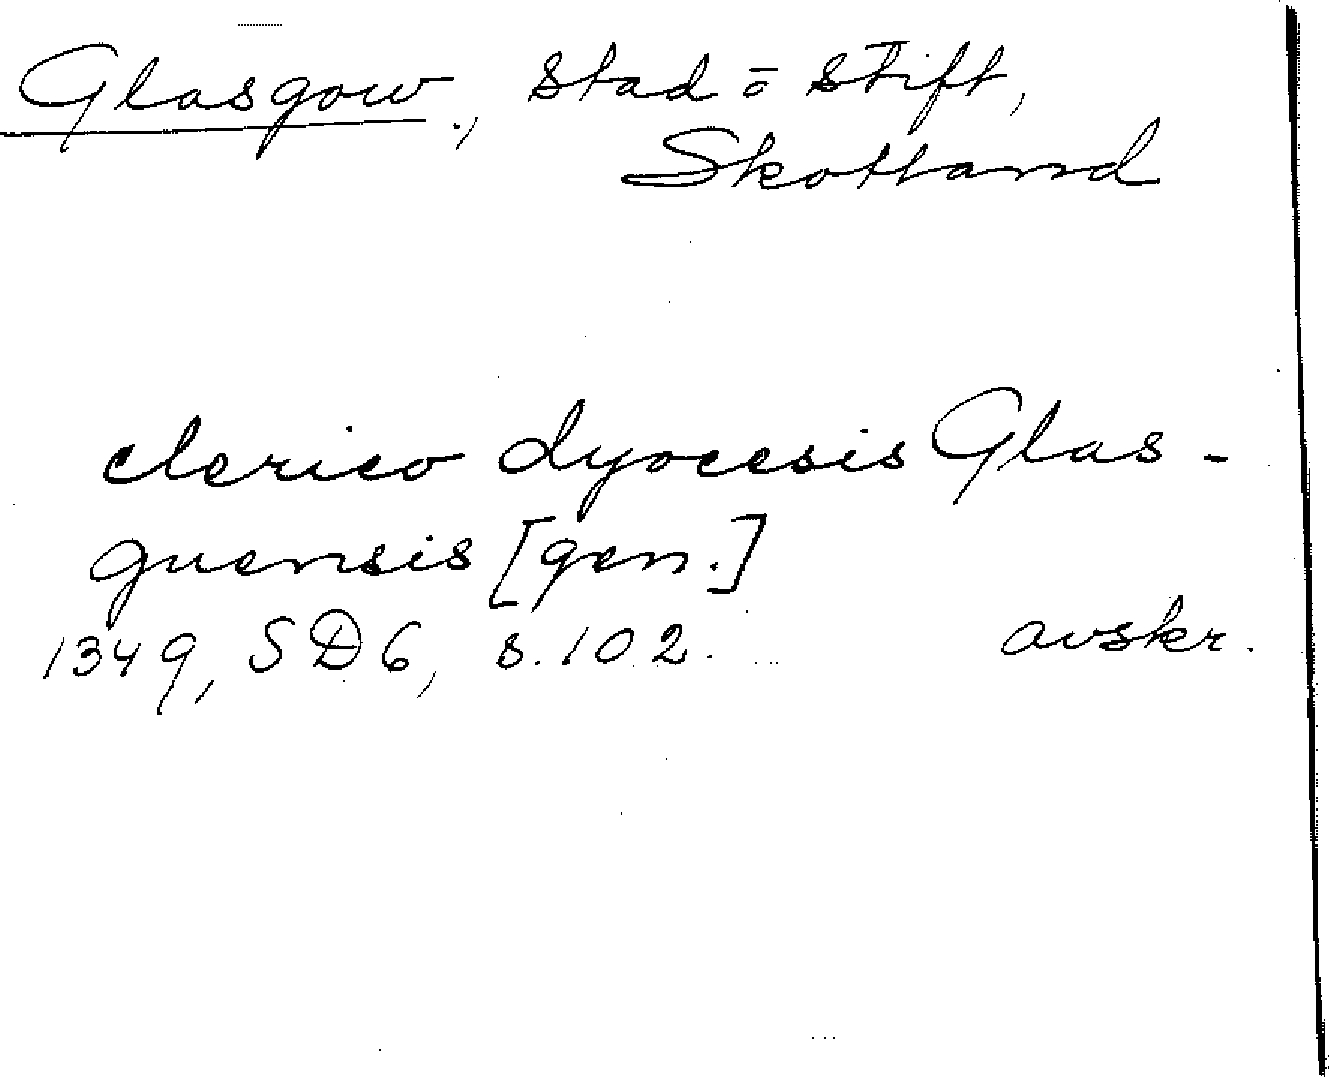 Glasgow., stad ō stift,
Skottland
clerico dyocesis Glas-
guensis [gen.]
1349, SD6, s. 102. avskr.